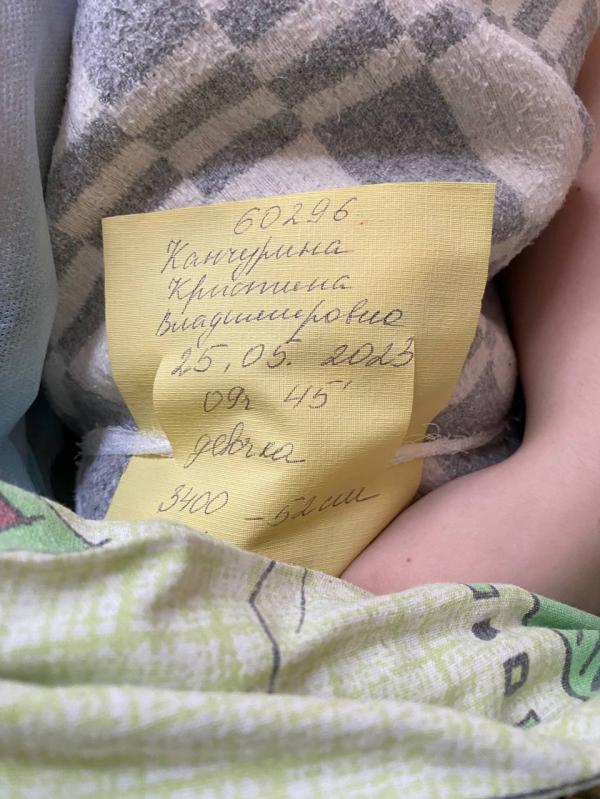 60296
Канчурина
Кристина
Владимировна
25.05. 2023
09ч 45'
девочка
3400 - 52 см